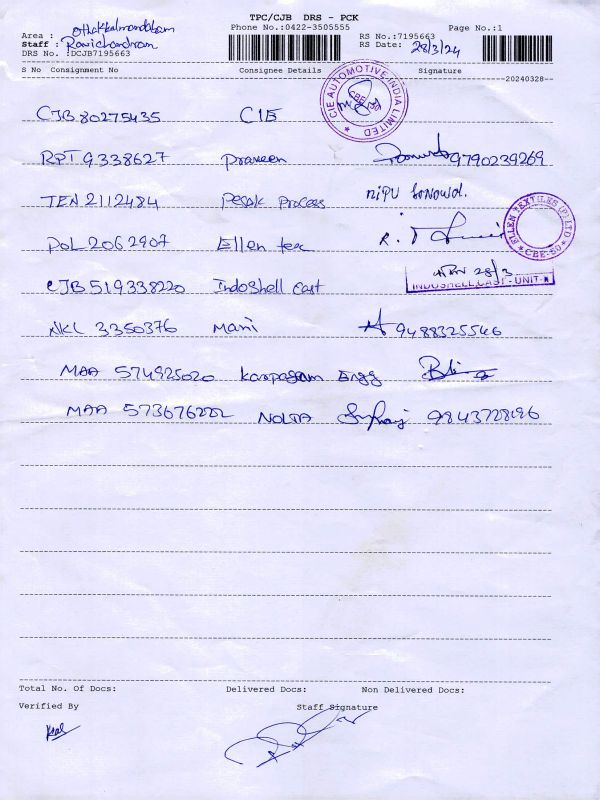 TPC/CJB DRS - PCK
Phone No.:0422-3505555
Page No.:1
Area : Othakkalmandabam
Staff : Ravichandran
DRS No. :DCJB7195663
RS No.:7195663
RS Date: 28/3/24
S No Consignment No Consignee Details Signature
20240328
CJB 80275435 CIE
CIE AUTOMOTIVE INDIA LIMITED
RPT 9338627 Praveen 9790239269
TEN 2112484 Pesok Process RIPU SONOWAL.
POL 2062907 Ellen tex
ELLEN TEXTILES (P) LTD
CBE-50
CJB 519338220 Indoshell Cast 28/3
INDOSHELL CAST - UNIT
NKL 3350376 Mani 9488325546
MAA 574925020 Karpagam Engg
MAA 573676222 NOLTA 9843728196
Total No. Of Docs: Delivered Docs: Non Delivered Docs:
Verified By Staff Signature